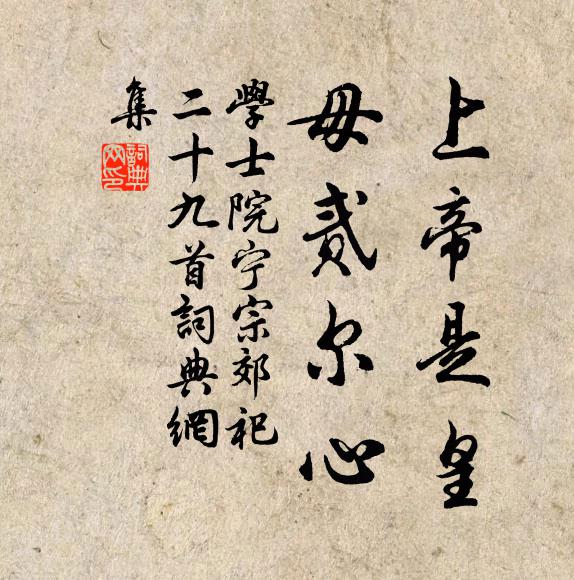 上帝是皇
毋貳尔心
學士院宁宗郊祀
二十九首詞典網
集
詞典
网印